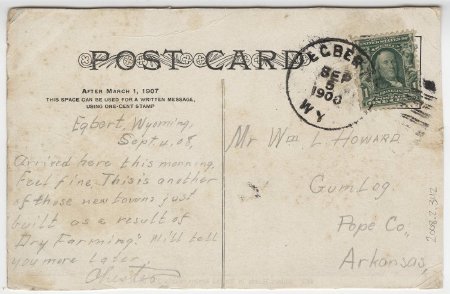 POST CARD
AFTER MARCH 1, 1907
THIS SPACE CAN BE USED FOR A WRITTEN MESSAGE,
USING ONE-CENT STAMP
Egbert, Wyoming,
Sept. 4, 08,
Arrived here this morning.
Feel fine. This is another
of those new towns just
built as a result of
"Dry Farming." Will tell
you more later.
Chester
EGBERT
SEP
5
190
WY
Mr Wm L. Howard
Gum Log
Pope Co.,
Arkansas.
2008.2.342